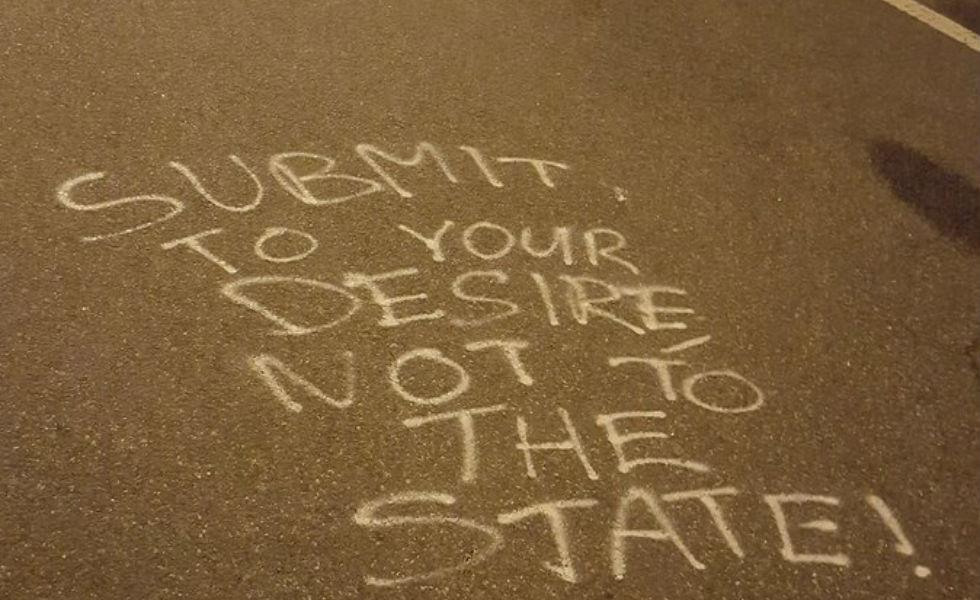 SUBMIT
TO YOUR
DESIRE,
NOT TO
THE
STATE!